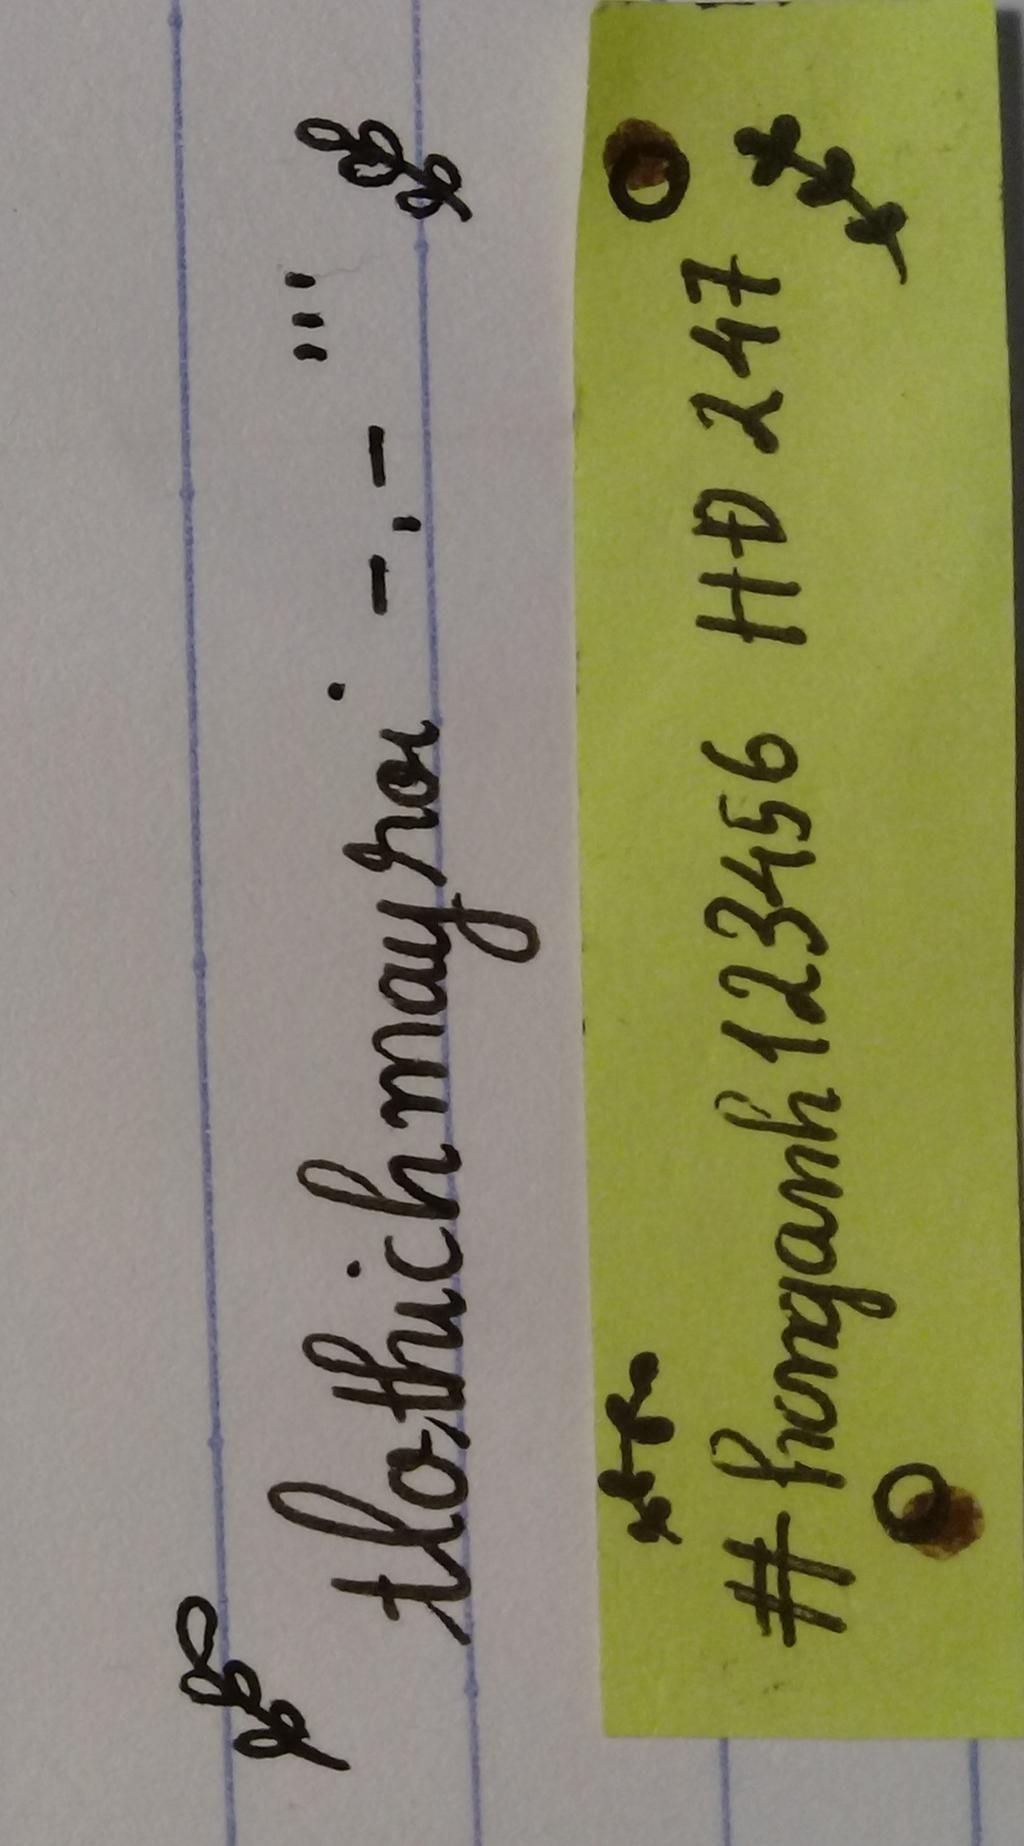 tlothichmayroi -.- '''
#honganh123456 HD 247